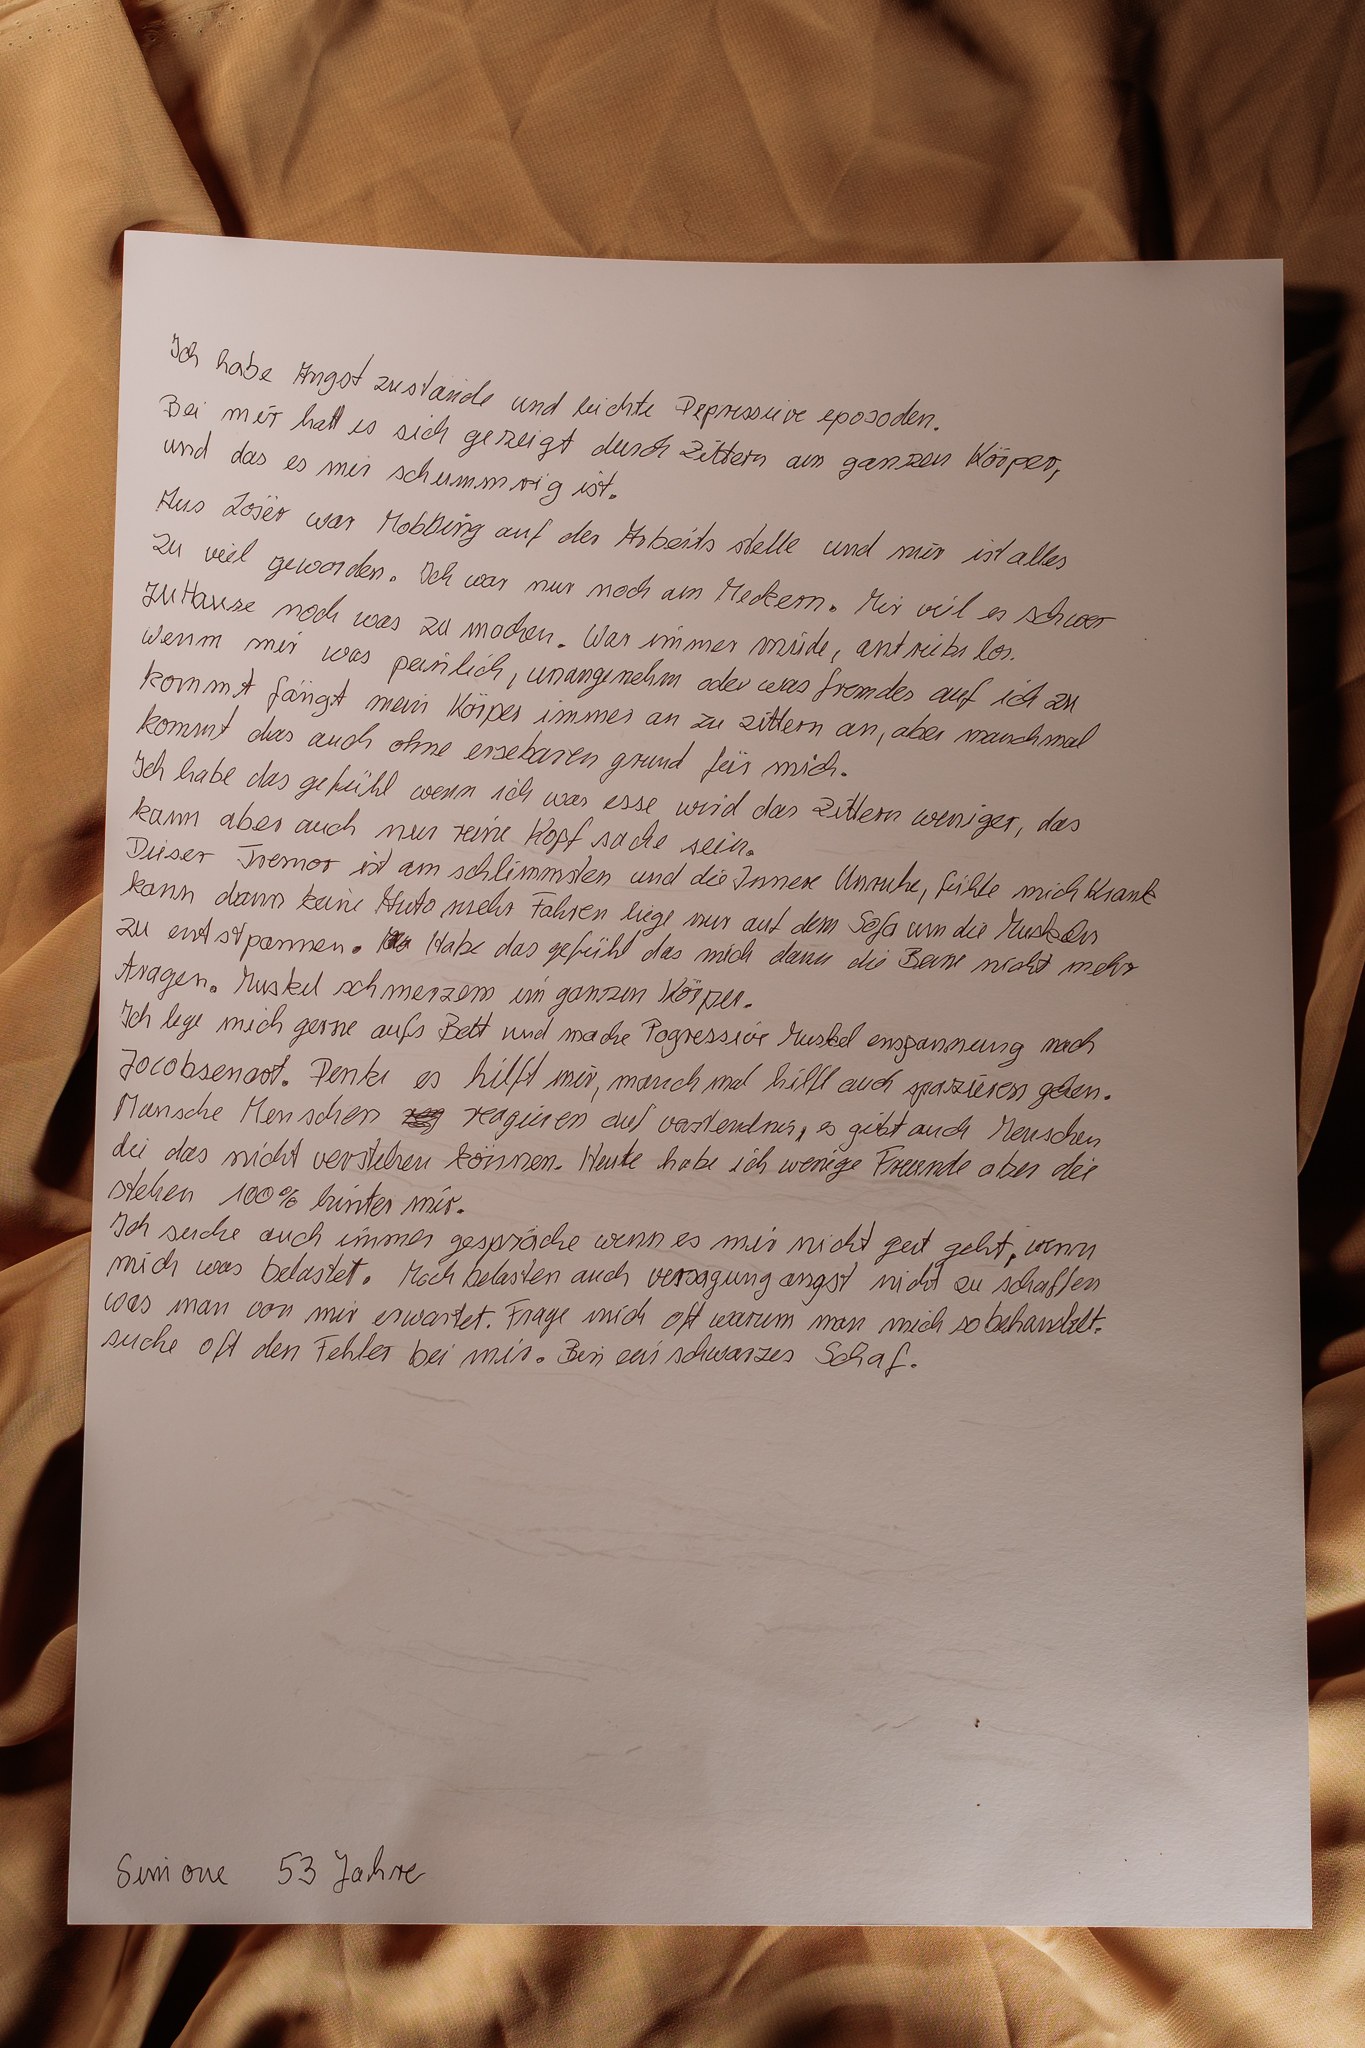 Ich habe Angst zustände und leichte Depressive eposoden.
Bei mir hatt es sich gezeigt durch Zittern am ganzen Körper,
und das es mir schummrig ist.
Aus Löser war Mobbing auf der Arbeits stelle und mir ist alles
zu viel geworden. Ich war nur noch am Meckern. Mir viel es schwer
zu Hause noch was zu machen. War immer müde, antriebs los.
Wenn mir was peinlich, unangenehm oder was fremdes auf ich zu
kommt fängt mein Körper immer an zu zittern an, aber manchmal
kommt das auch ohne ersebaren grund für mich.
Ich habe das gefühl wenn ich was esse wird das Zittern weniger, das
kann aber auch nur reine Kopf sache sein.
Dieser Tremor ist am schlimmsten und die Innere Unruhe, fühle mich Krank
kann dann keine Auto mehr Fahren liege nur auf dem Sofa um die Muskeln
zu entspannen. Habe das gefühl das mich dann die Beine nicht mehr
tragen. Muskel schmerzen im ganzen Körper.
Ich lege mich gerne aufs Bett und mache Pogressive Muskel enspannung nach
Jocobsenart. Denke es hilft mir, manch mal hilft auch spazieren gehen.
Mansche Menschen reagieren auf verstendnis, es gibt auch Menschen
die das nicht verstehen können. Heute habe ich wenige Freunde aber die
stehen 100% hinter mir.
Ich suche auch immer gespräche wenn es mir nicht gut geht, wenn
mich was belastet. Mich belasten auch versagung angst nicht zu schaffen
was man von mir erwartet. Frage mich oft warum man mich so behandelt.
suche oft den Fehler bei mir. Bin ein schwarzes Schaf.
Simone 53 Jahre